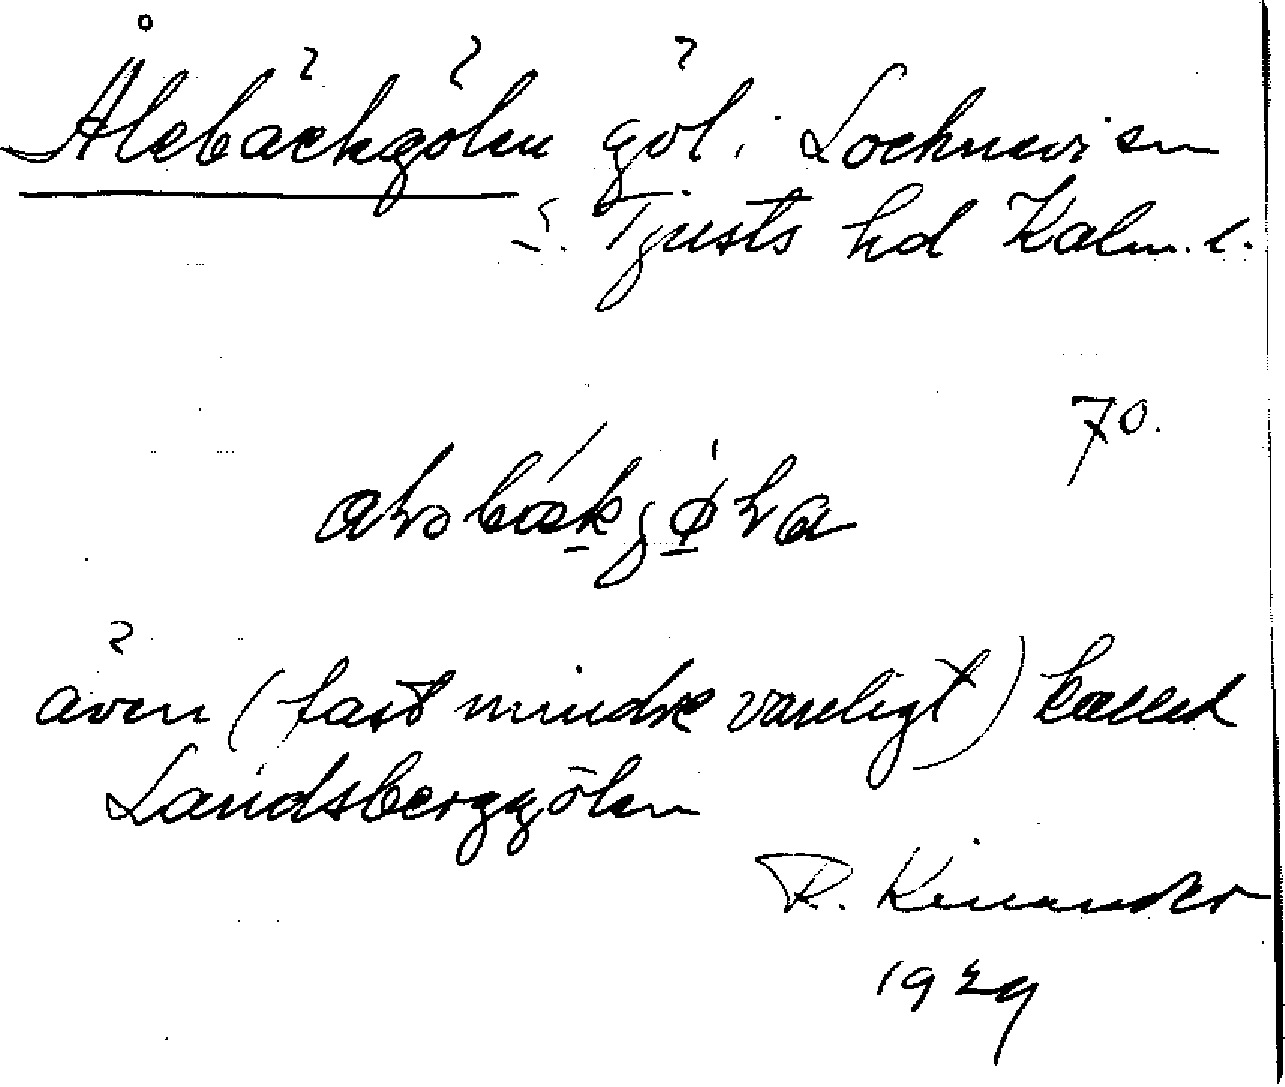 Ålebäckgölen göl i Locknevi sn
S. Tjusts hd Kalm. l.
70.
även (fast mindre vanligt) kallad
Landsberggölen
R. Kinander
1929